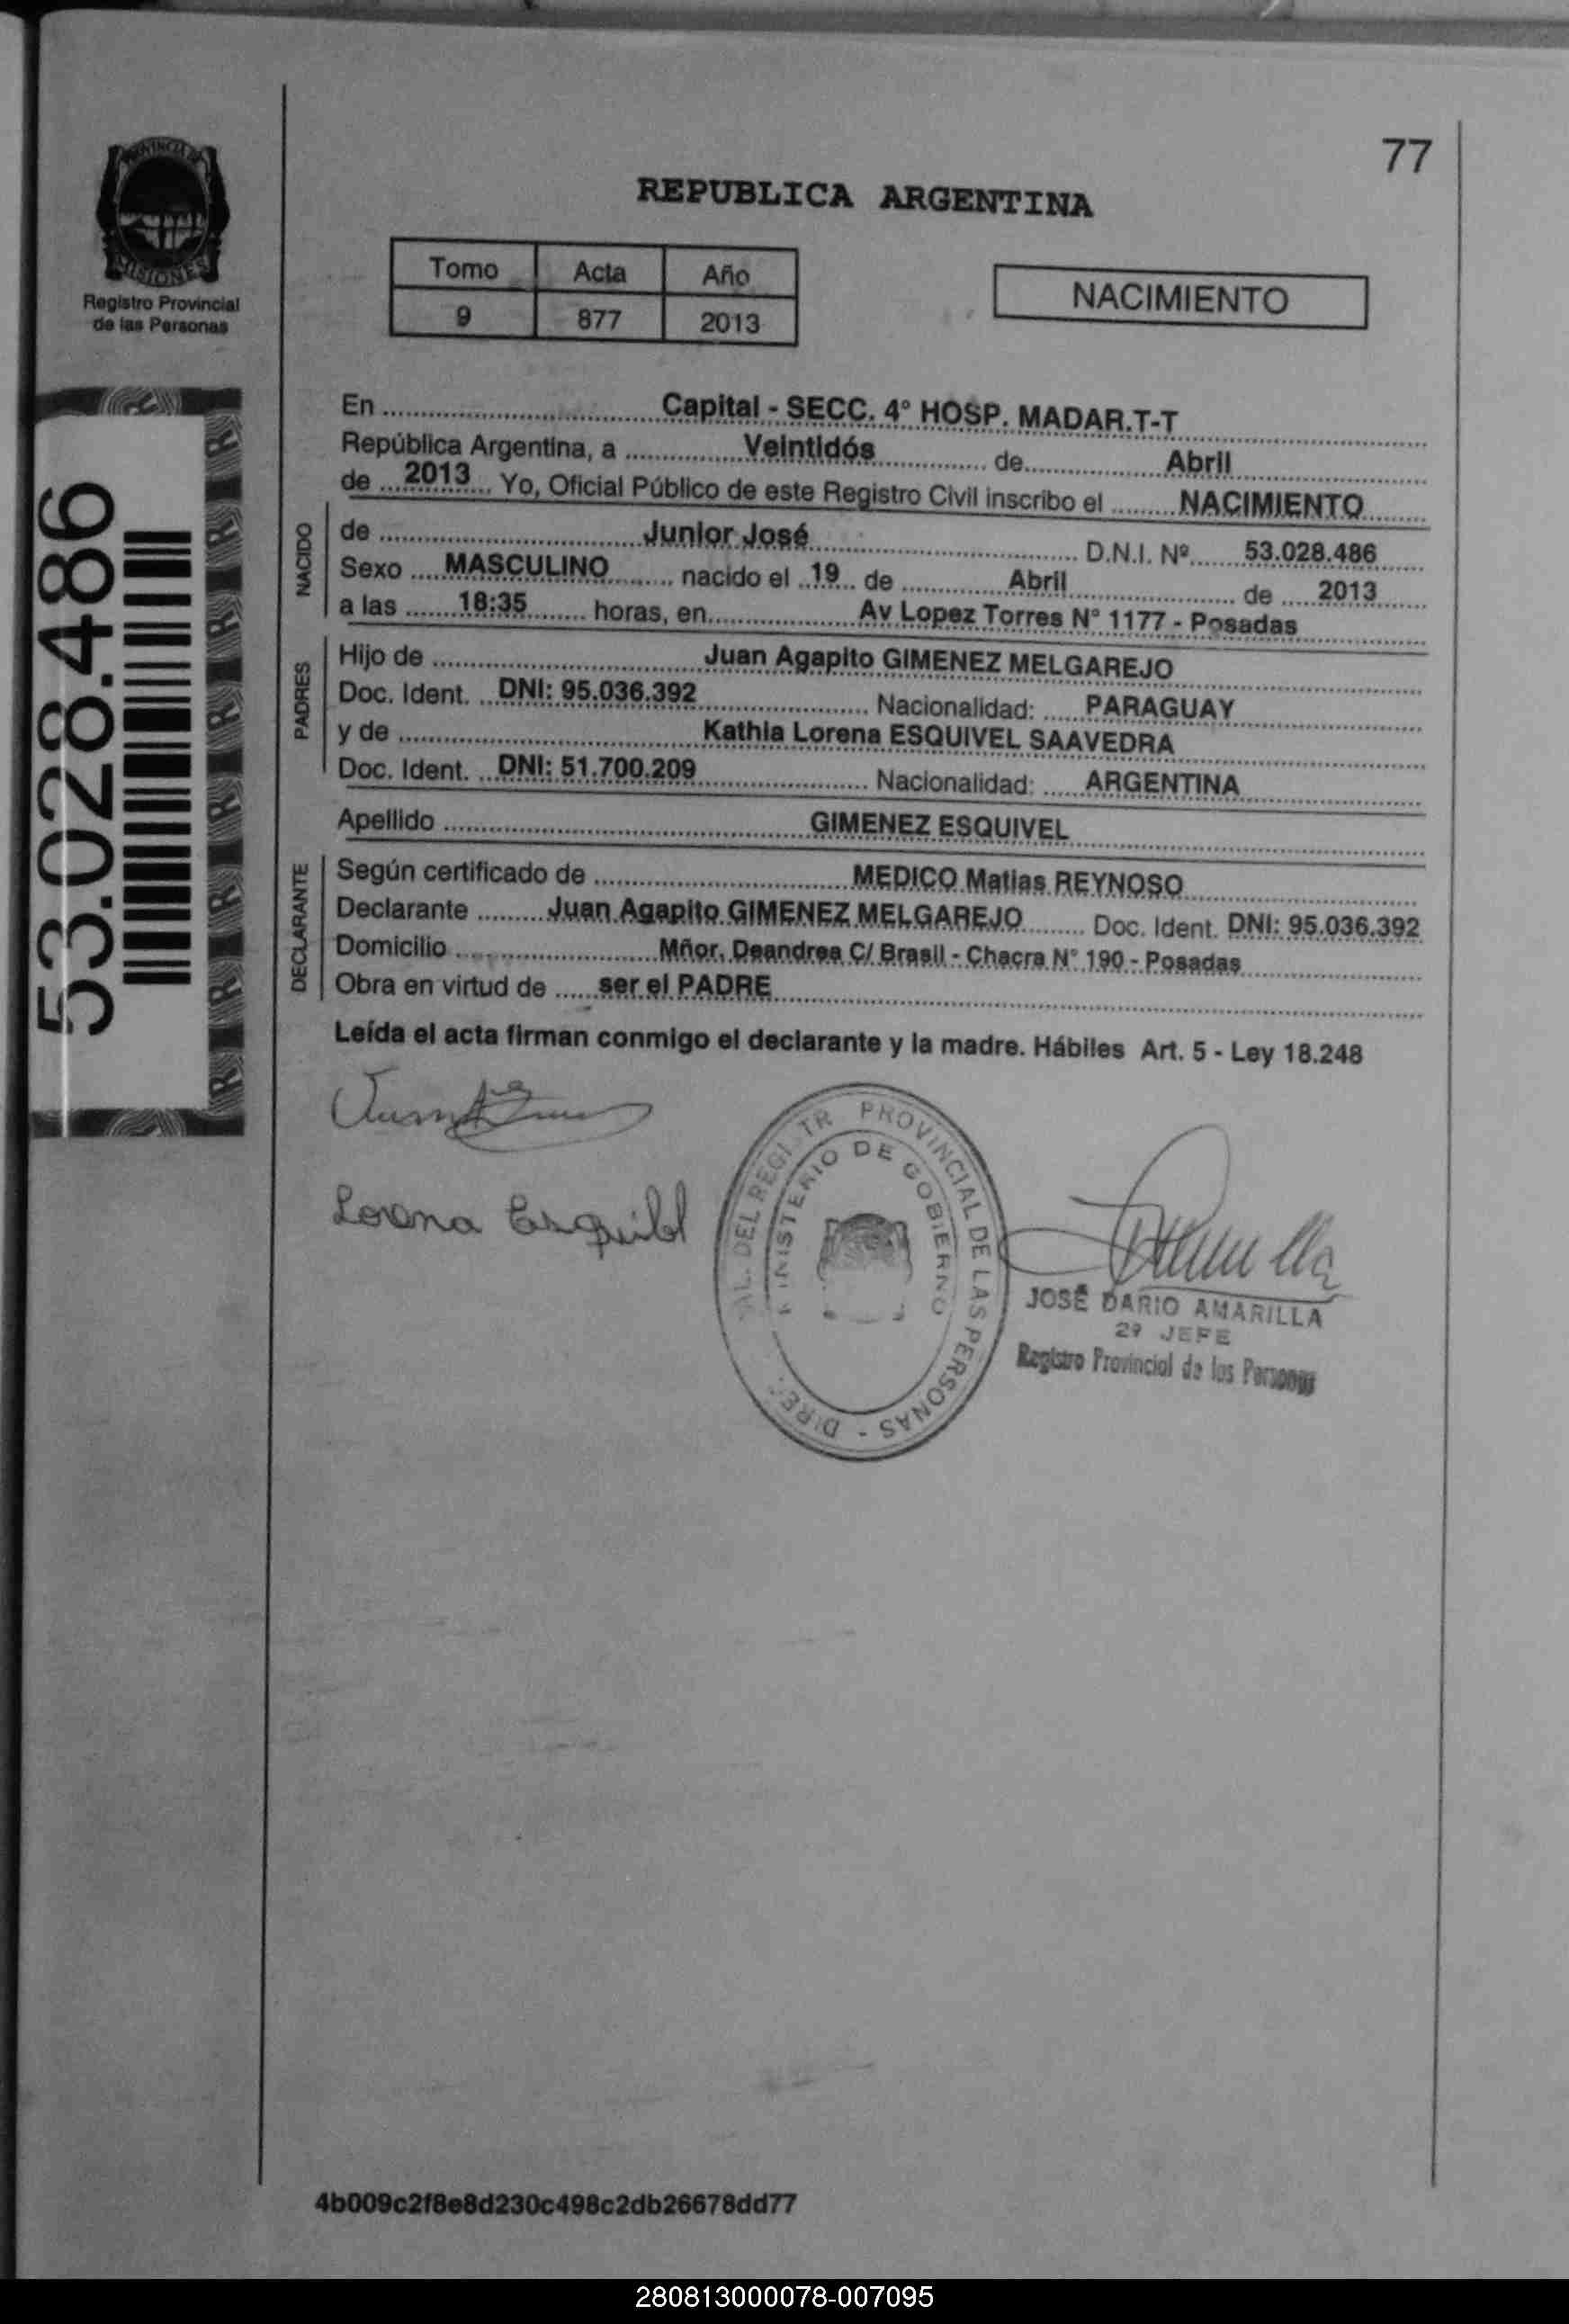 77
PROVINCIA DE
MISIONES
Registro Provincial
de las Personas
REPUBLICA ARGENTINA
Tomo Acta Año
9 877 2013
NACIMIENTO
53.028.486
En Capital - SECC. 4° HOSP. MADAR.T-T
República Argentina, a Veintidós de Abril
de 2013 Yo, Oficial Público de este Registro Civil inscribo el NACIMIENTO
NACIDO
de Junior José D.N.I. Nº 53.028.486
Sexo MASCULINO nacido el 19 de Abril de 2013
a las 18:35 horas, en Av Lopez Torres N° 1177 - Posadas
PADRES
Hijo de Juan Agapito GIMENEZ MELGAREJO
Doc. Ident. DNI: 95.036.392 Nacionalidad: PARAGUAY
y de Kathia Lorena ESQUIVEL SAAVEDRA
Doc. Ident. DNI: 51.700.209 Nacionalidad: ARGENTINA
Apellido GIMENEZ ESQUIVEL
DECLARANTE
Según certificado de MEDICO Matias REYNOSO
Declarante Juan Agapito GIMENEZ MELGAREJO Doc. Ident. DNI: 95.036.392
Domicilio Mñor. Deandrea C/ Brasil - Chacra N° 190 - Posadas
Obra en virtud de ser el PADRE
Leída el acta firman conmigo el declarante y la madre. Hábiles Art. 5 - Ley 18.248
Lorena Esquibel
PROVINCIAL DE LAS PERSONAS -
DE GOBIERNO
JOSÉ DARIO AMARILLA
2º JEFE
Registro Provincial de las Personas
4b009c2f8e8d230c498c2db26678dd77
280813000078-007095